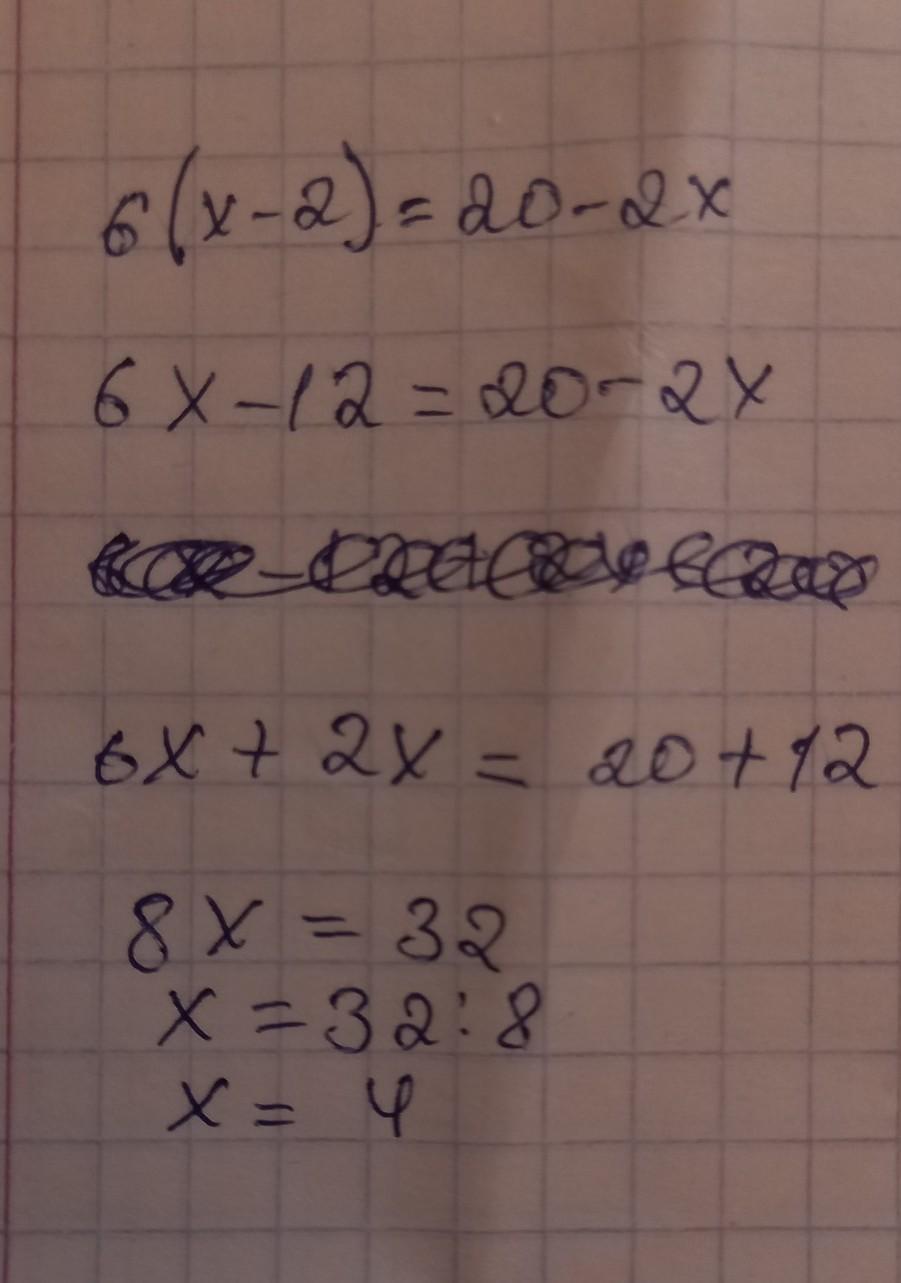 6(x-2)=20-2x
6x-12=20-2x
6x+2x=20+12
8x=32
x=32:8
x=4